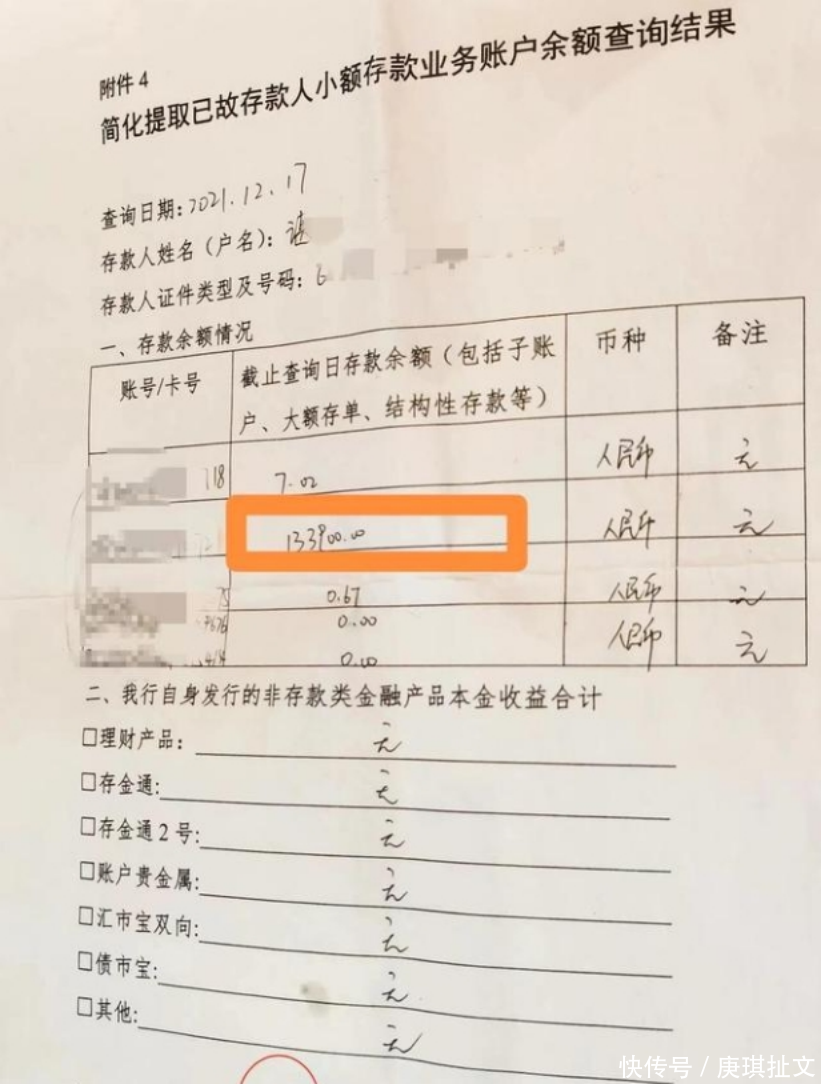 附件4
简化提取已故存款人小额存款业务账户余额查询结果
查询日期:2021.12.17
存款人姓名（户名）：谜
存款人证件类型及号码：6
一、存款余额情况
账号/卡号 截止查询日存款余额（包括子账户、大额存单、结构性存款等） 币种 备注
118 7.02 人民币 元
133900.00 人民币 元
75 0.67 人民币 元
7676 0.00
414 0.00 人民币 元
二、我行自身发行的非存款类金融产品本金收益合计
□理财产品： 元
□存金通: 元
□存金通2号: 元
□账户贵金属: 元
□汇市宝双向: 元
□债市宝: 元
□其他: 元
快传号／庚琪扯文